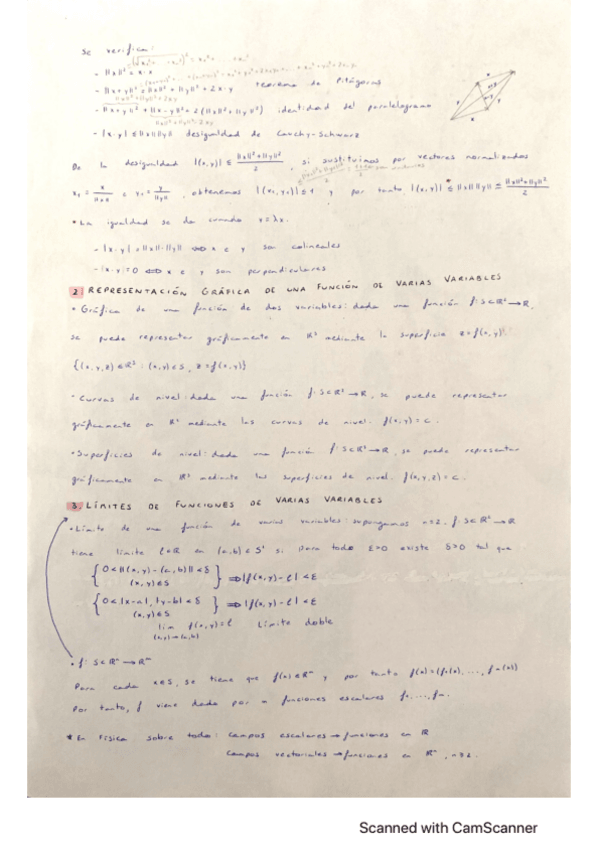 Se verifica:
- ||x||² = x·x
- ||x+y||² = ||x||² + ||y||² + 2x·y teorema de Pitágoras
- ||x+y||² + ||x-y||² = 2(||x||² + ||y||²) identidad del paralelogramo
- |x·y| ≤ ||x|| ||y|| desigualdad de Cauchy-Schwarz
De la desigualdad |(x,y)| ≤ (||x||²+||y||²)/2, si sustituimos por vectores normalizados
x₁ = x/||x|| e y₁ = y/||y||, obtenemos |(x₁,y₁)| ≤ 1 y por tanto |(x,y)| ≤ ||x|| ||y|| ≤ (||x||²+||y||²)/2
• La igualdad se da cuando y = λx.
- |x·y| = ||x||·||y|| ⇔ x e y son colineales
- x·y = 0 ⇔ x e y son perpendiculares
2. REPRESENTACIÓN GRÁFICA DE UNA FUNCIÓN DE VARIAS VARIABLES
• Gráfica de una función de dos variables: dada una función f: S⊂ℝ² → ℝ,
se puede representar gráficamente en ℝ³ mediante la superficie z = f(x,y)
{(x,y,z) ∈ ℝ³ : (x,y) ∈ S, z = f(x,y)}
• Curvas de nivel: dada una función f: S⊂ℝ² → ℝ, se puede representar
gráficamente en ℝ² mediante las curvas de nivel. f(x,y) = c.
• Superficies de nivel: dada una función f: S⊂ℝ³ → ℝ, se puede representar
gráficamente en ℝ³ mediante las superficies de nivel. f(x,y,z) = c.
3. LÍMITES DE FUNCIONES DE VARIAS VARIABLES
• Límite de una función de varias variables: supongamos n=2. f: S⊂ℝ² → ℝ
tiene límite ℓ∈ℝ en (a,b) ∈ S' si para todo ε>0 existe δ>0 tal que
{0 < ||(x,y) - (a,b)|| < δ (x,y) ∈ S} ⇒ |f(x,y) - ℓ| < ε
{0 < |x-a|, |y-b| < δ (x,y) ∈ S} ⇒ |f(x,y) - ℓ| < ε
lim (x,y)→(a,b) f(x,y) = ℓ Límite doble
• f: S⊂ℝⁿ → ℝᵐ
Para cada x∈S, se tiene que f(x) ∈ ℝᵐ y por tanto f(x) = (f₁(x), ..., fₘ(x))
Por tanto, f viene dada por m funciones escalares f₁, ..., fₘ.
* En Física sobre todo: Campos escalares → funciones en ℝ
Campos vectoriales → funciones en ℝⁿ, n≥2.
Scanned with CamScanner